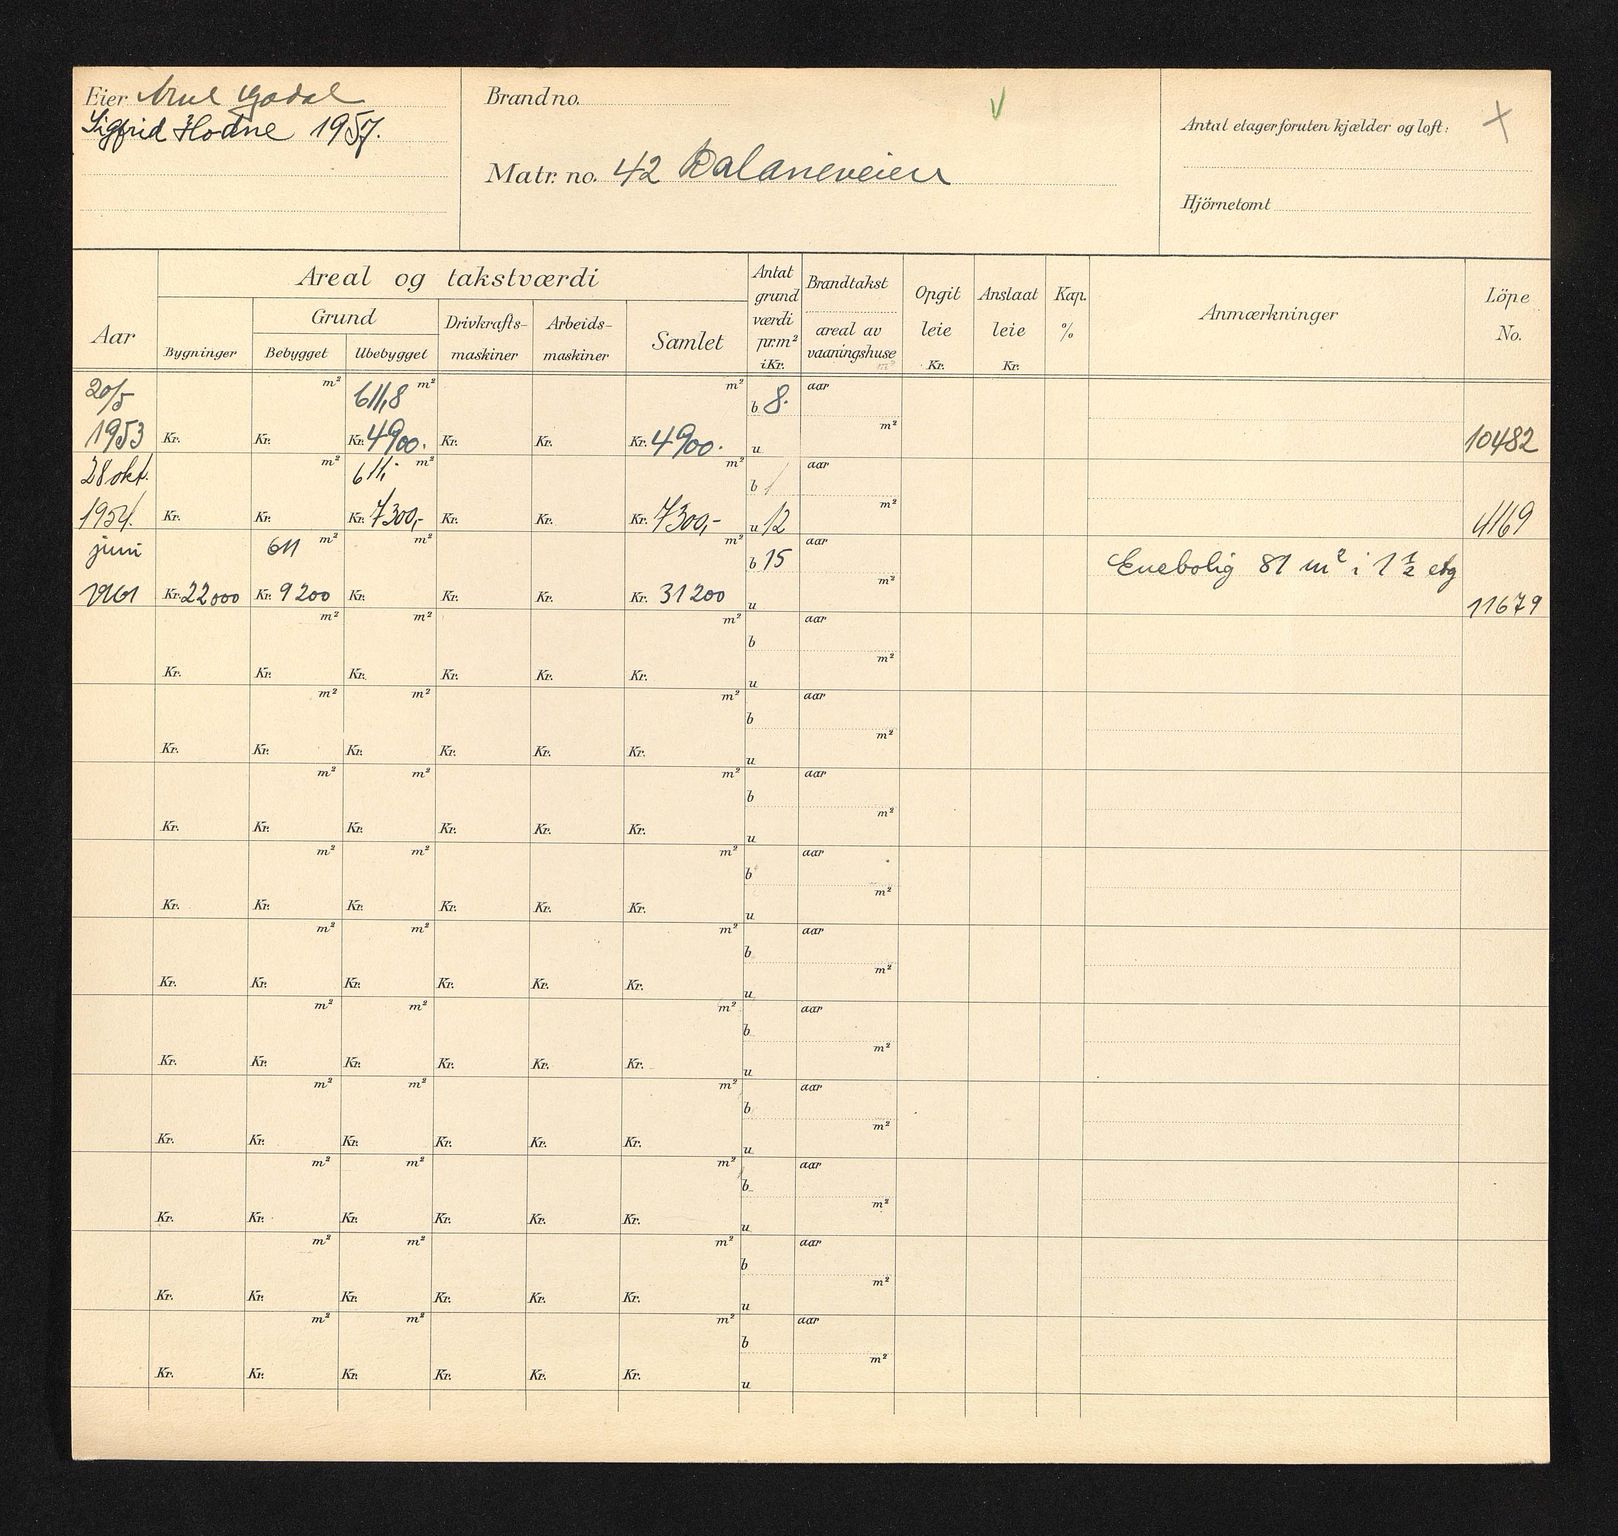 Eier Arne Godal
Sigfrid Hodne 1957.
Brand no.
Matr. no. 42 Dalaneveien
Antal etager foruten kjælder og loft:
Hjörnetomt
Aar
Areal og takstværdi
Bygninger
Grund
Bebygget
Ubebygget
Drivkrafts-
maskiner
Arbeids-
maskiner
Samlet
Antat
grund
værdi
pr. m²
i Kr.
Brandtakst
areal av
vaaningshuse
m²
Opgit
leie
Kr.
Anslaat
leie
Kr.
Kap.
%
Anmærkninger
Löpe
No.
20/5 m² 611,8 m² m² b 8. aar
m²
1953 Kr. Kr. Kr. 4900. Kr. Kr. Kr. 4900. u 10482
28 okt. m² 611,- m² m² b aar
m²
1954. Kr. Kr. Kr. 7300,- Kr. Kr. Kr. 7300,- u 12 4169
juni 611 m² m² m² b 15 aar Enebolig 81 m² i 1 ½ etg
m²
1961 Kr. 22000 Kr. 9200 Kr. Kr. Kr. Kr. 31200 u 11679
m² m² m² aar
b
m²
Kr. Kr. Kr. Kr. Kr. Kr. u
m² m² m² aar
b
m²
Kr. Kr. Kr. Kr. Kr. Kr. u
m² m² m² aar
b
m²
Kr. Kr. Kr. Kr. Kr. Kr. u
m² m² m² aar
b
m²
Kr. Kr. Kr. Kr. Kr. Kr. u
m² m² m² aar
b
m²
Kr. Kr. Kr. Kr. Kr. Kr. u
m² m² m² aar
b
m²
Kr. Kr. Kr. Kr. Kr. Kr. u
m² m² m² aar
b
m²
Kr. Kr. Kr. Kr. Kr. Kr. u
m² m² m² aar
b
m²
Kr. Kr. Kr. Kr. Kr. Kr. u
m² m² m² aar
b
m²
Kr. Kr. Kr. Kr. Kr. Kr. u
m² m² m² aar
b
m²
Kr. Kr. Kr. Kr. Kr. Kr. u